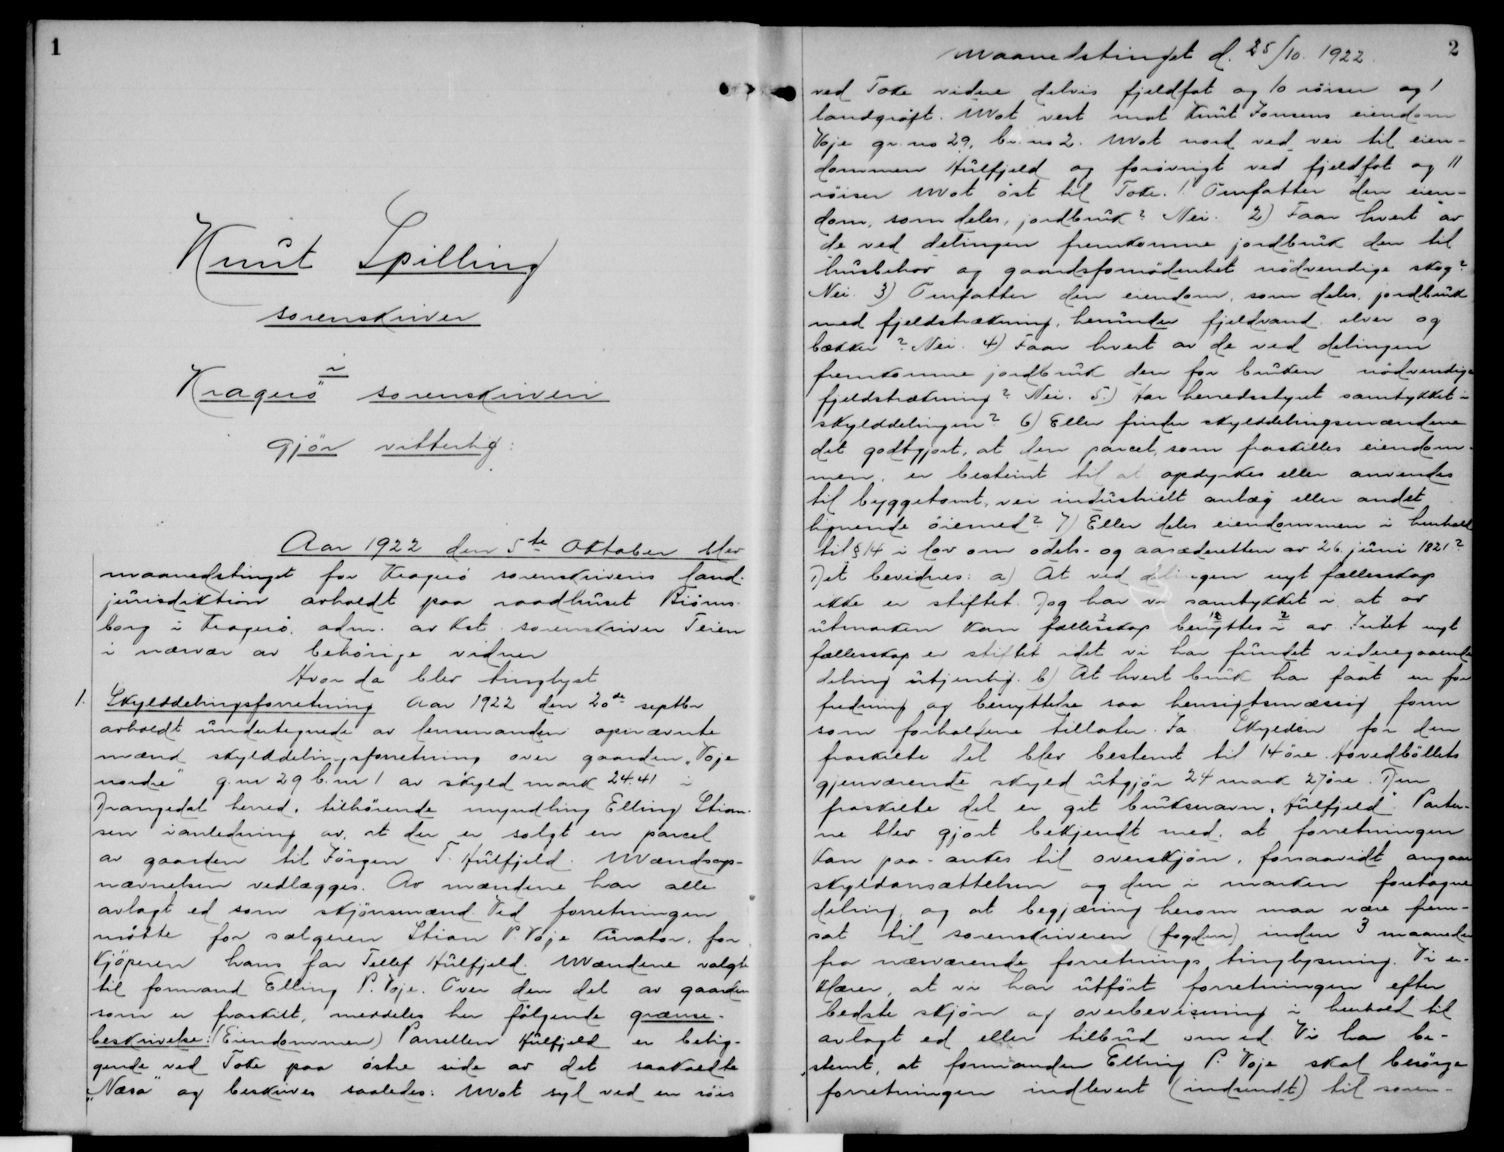 1
Knut Spilling
sorenskriver
i
Kragerö sorenskriveri
gjör vitterlig:
Aar 1922 den 5te oktober blev
maanedstinget for Kragerö sorenskriveris land-
jurisdiktion avholdt paa raadhuset Biörns-
borg i Kragerö, adm. av kst. sorenskriver Teien
i nærvær av behörige vidner
Hvor da blev tinglyst
1. Skylddelingsforretning Aar 1922 den 20de septbr
avholdt undertegnede av lensmanden opnævnte
mænd skylddelingsforretning over gaarden "Voje
nordre" g.nr 29 b.nr 1 av skyld mark 24 41 i
Drangedal herred, tilhörende myndling Elling Stian-
sen i anledning av, at der er solgt en parcel
av gaarden til Jörgen T. Hulfjeld. Mændsop-
nævnelsen vedlægges. Av mændene har alle
avlagt ed som skjönsmænd. Ved forretningen
mötte for sælgeren Stian P. Voje kurator, for
kjöperen hans far Tellef Hulfjeld. Mændene valgte
til formand Elling P. Voje. Over den del av gaarden
som er fraskilt, meddeles her fölgende grænse-
beskrivelse: (Eiendommen) Parsellen Hulfjeld er belig-
gende ved Toke paa östre side av det saakaldte
"Næsa" og beskrives saaledes: Mot syd ved en röis
Maanedstinget d. 25/10. 1922.
2
ved Toke videre delvis fjeldfot og 10 röiser og 1
landgröft. Mot vest mot Knut Jonsens eiendom
Voje gr. no 29, br. no 2. Mot nord ved vei til eien-
dommen Hulfjeld og forövrigt ved fjeldfot og 11
röiser Mot öst til Toke. 1. Omfatter den eien-
dom, som deles, jordbruk? Nei. 2) Faar hvert av
de ved delingen fremkomne jordbruk den til
husbehov og gaardsfornödenhet nödvendige skog?
Nei. 3) Omfatter den eiendom, som deles, jordbruk
med fjeldstrækning, herunder fjeldvand, elver og
bækker? Nei. 4) Faar hvert av de ved delingen
fremkomne jordbruk den for bruken nödvendige
fjeldstrækning? Nei. 5.) Har herredsstyret samtykket i
skylddelingen? 6) Eller finder skylddelingsmændene
det godtgjort, at den parcel, som fraskilles eiendom-
men, er bestemt til at opdyrkes eller anvendes
til byggetomt, vei industrielt anlæg eller andet
lignende öiemed? 7) Eller deles eiendommen i henhold
til § 14 i lov om odels- og aasædesretten av 26. juni 1821?
Det bevidnes: a) At ved delingen nyt fællesskap
ikke er stiftet. Dog har vi samtykket i at av
utmarken kan fællesskap benyttes i av Intet nyt
fællesskap er stiftet idet vi har fundet videregaaende
deling utjenlig. b) At hvert bruk har faat en for
fredning og benyttelse saa hensigtsmæssig form
som forholdene tillater. Ja. Skylden for den
fraskilte del blev bestemt til 14 öre. Hovedböllets
gjenværende skyld utgjör 24 mark 27 öre. Den
fraskilte del er git bruksnavn "Hulfjeld". Parter-
ne blev gjort bekjendt med, at forretningen
kan paa-ankes til overskjön, forsaavidt angaar
skyldansættelsen og den i marken foretagne
deling, og at begjæring herom maa være frem-
sat til sorenskriveren (fogden) inden 3 maaneder
fra nærværende forretnings tinglysning. Vi er-
klærer, at vi har utfört forretningen efter
bedste skjön og overbevisning i henhold til
avlagt ed eller tilbud om ed. Vi har be-
stemt, at formanden Elling P. Voje skal besörge
forretningen indlevert (indsendt) til soren-